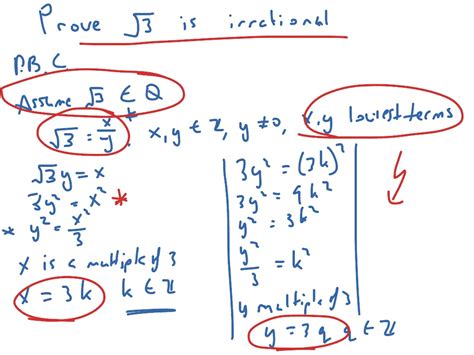 Prove √3 is irrational
P.B.C.
Assume √3 ∈ Q
√3 = x/y * x, y ∈ ℤ, y ≠ 0, x, y lowest terms
√3y = x
3y² = x² *
* y² = x²/3
x is a multiple of 3
x = 3k k ∈ ℤ
3y² = (3k)²
3y² = 9k²
y² = 3k²
y²/3 = k²
y multiple of 3
y = 3q q ∈ ℤ